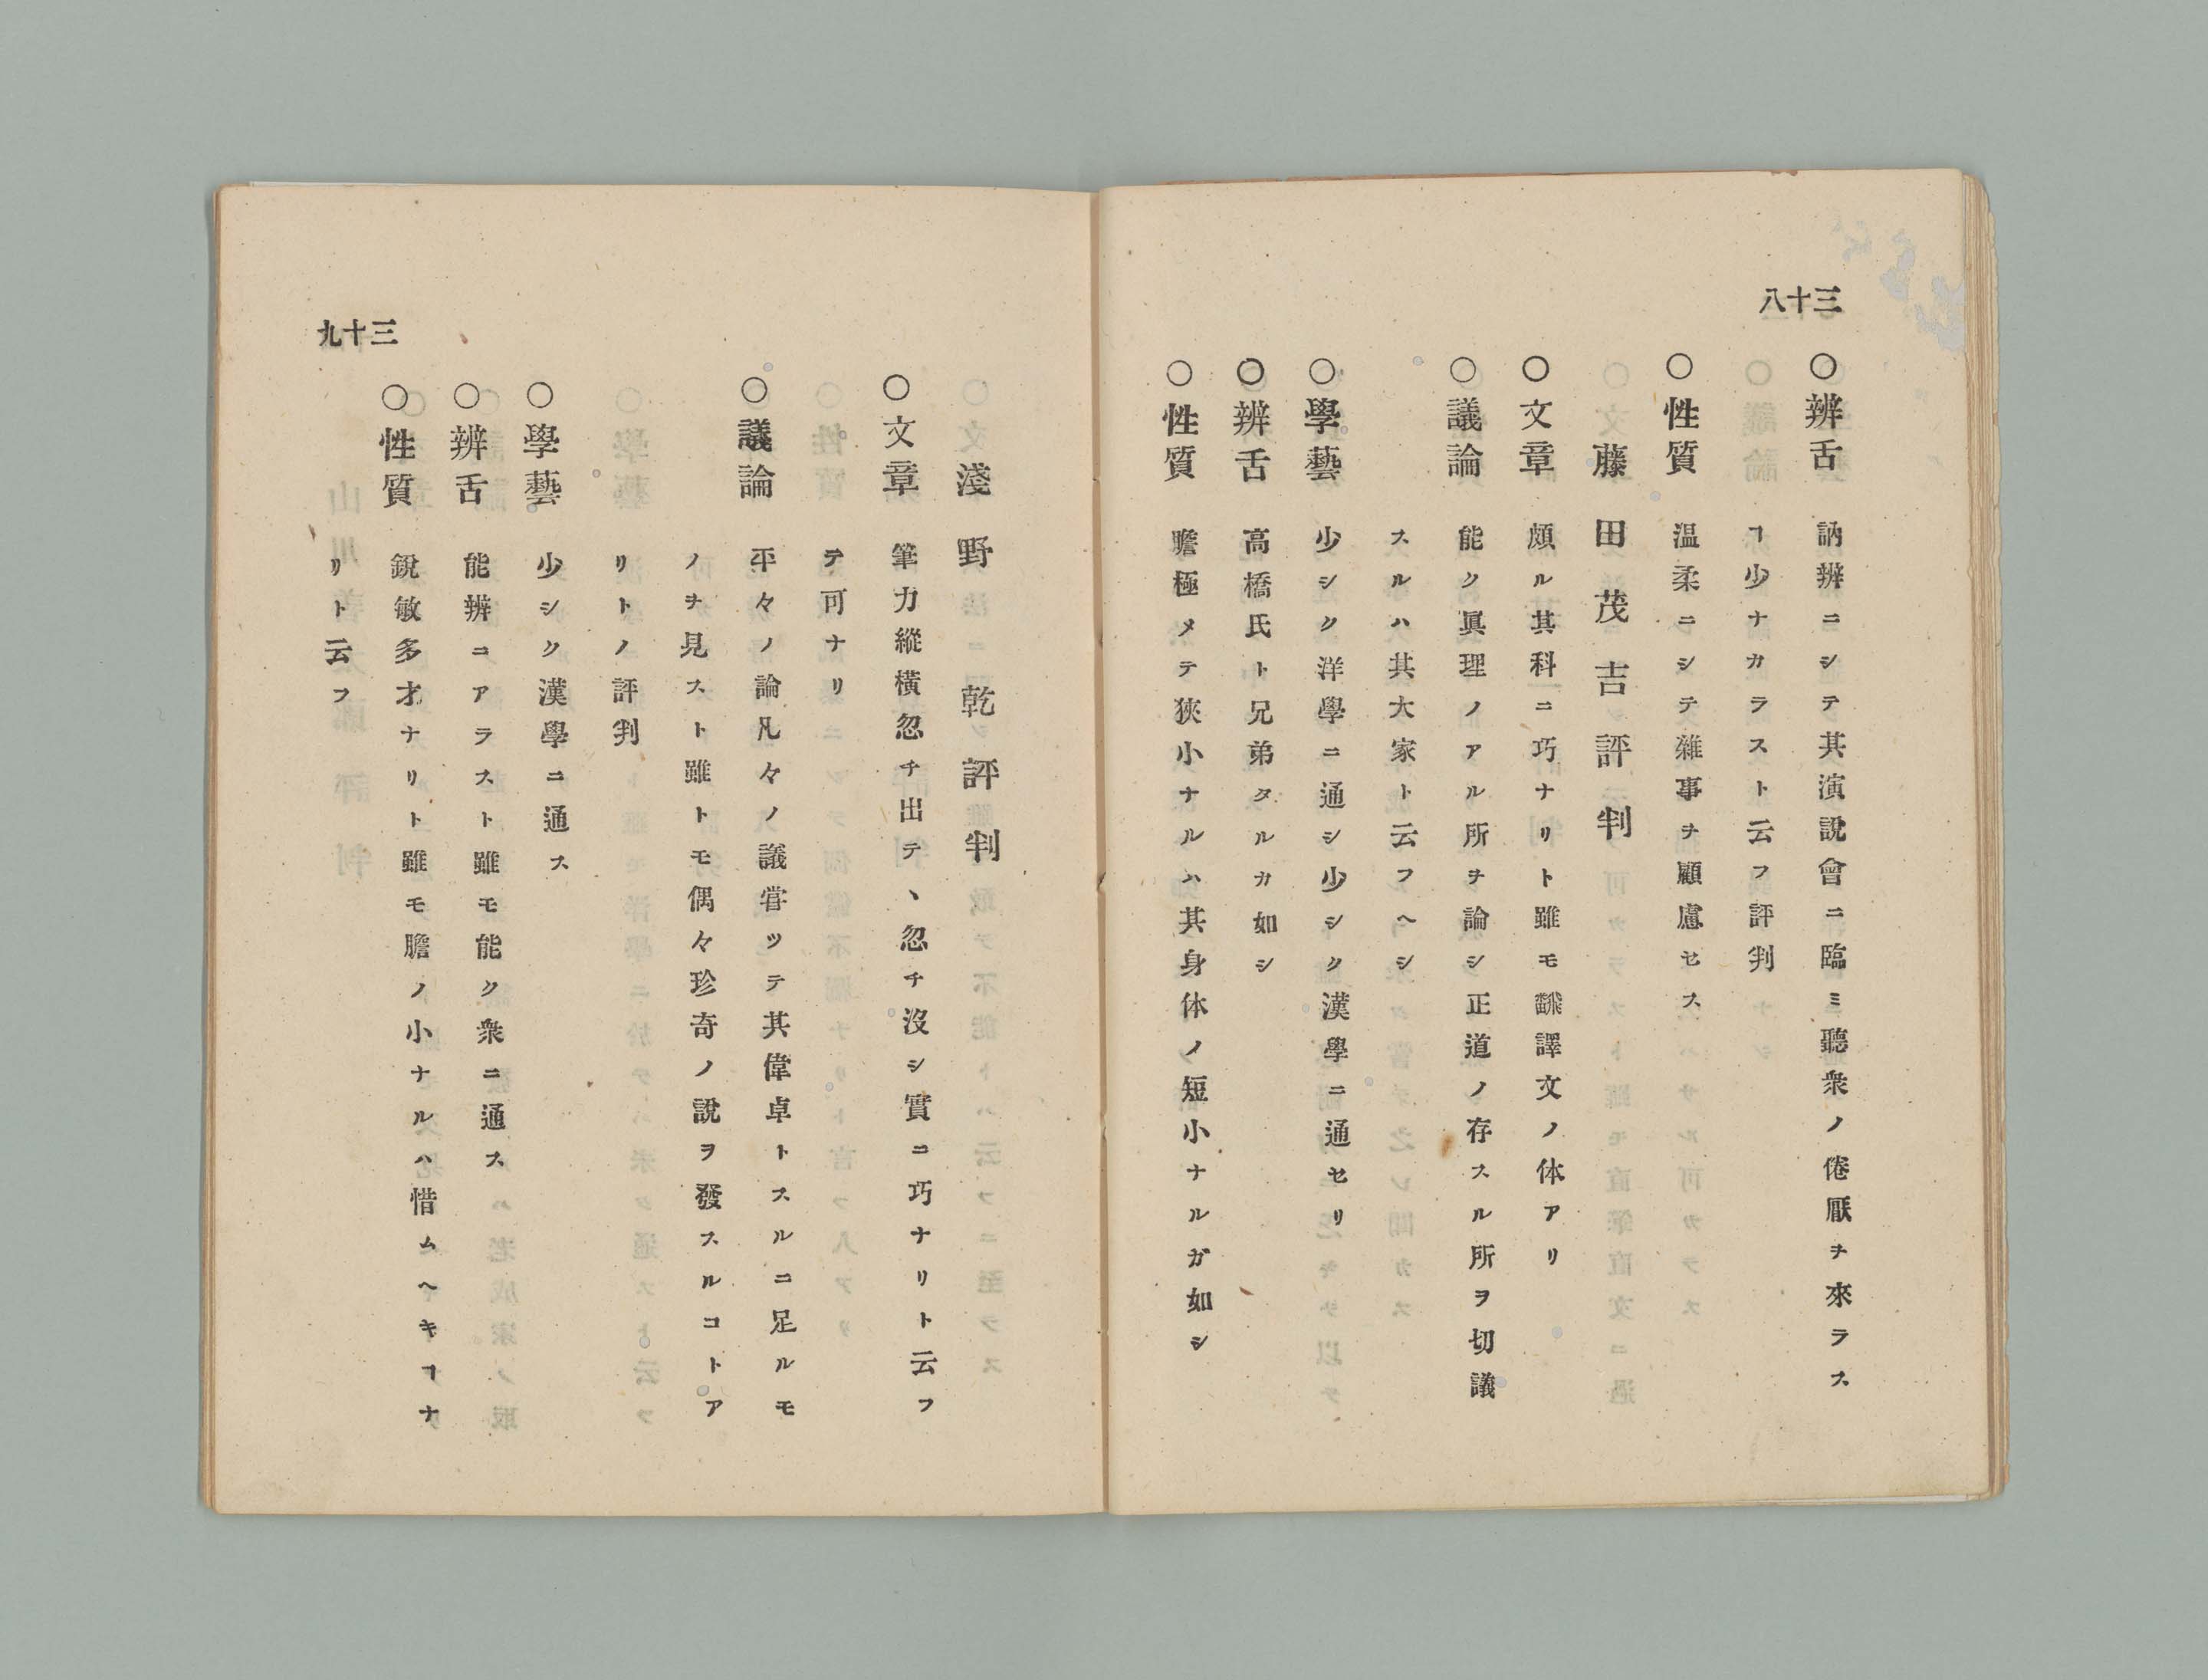 三十八
○辨舌 訥辨ニシテ其演說會ニ臨ミ聽衆ノ倦厭ヲ來ラス
ヿ少ナカラスト云フ評判
○性質 温柔ニシテ雜事ヲ顧慮セス
藤田茂吉評判
○文章 頗ル其科ニ巧ナリト雖モ飜譯文ノ体アリ
○議論 能ク眞理ノアル所ヲ論シ正道ノ存スル所ヲ切議
スルハ其大家ト云フヘシ
○學藝 少シク洋學ニ通シ少シク漢學ニ通セリ
○辨舌 高橋氏ト兄弟タルカ如シ
○性質 膽極メテ狹小ナルハ其身体ノ短小ナルガ如シ
三十九
淺野乾評判
○文章 筆力縱橫忽チ出テヽ忽チ沒シ實ニ巧ナリト云フ
テ可ナリ
○議論 平々ノ論凡々ノ議嘗ツテ其偉卓トスルニ足ルモ
ノヲ見スト雖トモ偶々珍奇ノ說ヲ發スルコトア
リトノ評判
○學藝 少シク漢學ニ通ス
○辨舌 能辨ニアラスト雖モ能ク衆ニ通ス
○性質 銳敏多才ナリト雖モ膽ノ小ナルハ惜ムヘキヿナ
リト云フ